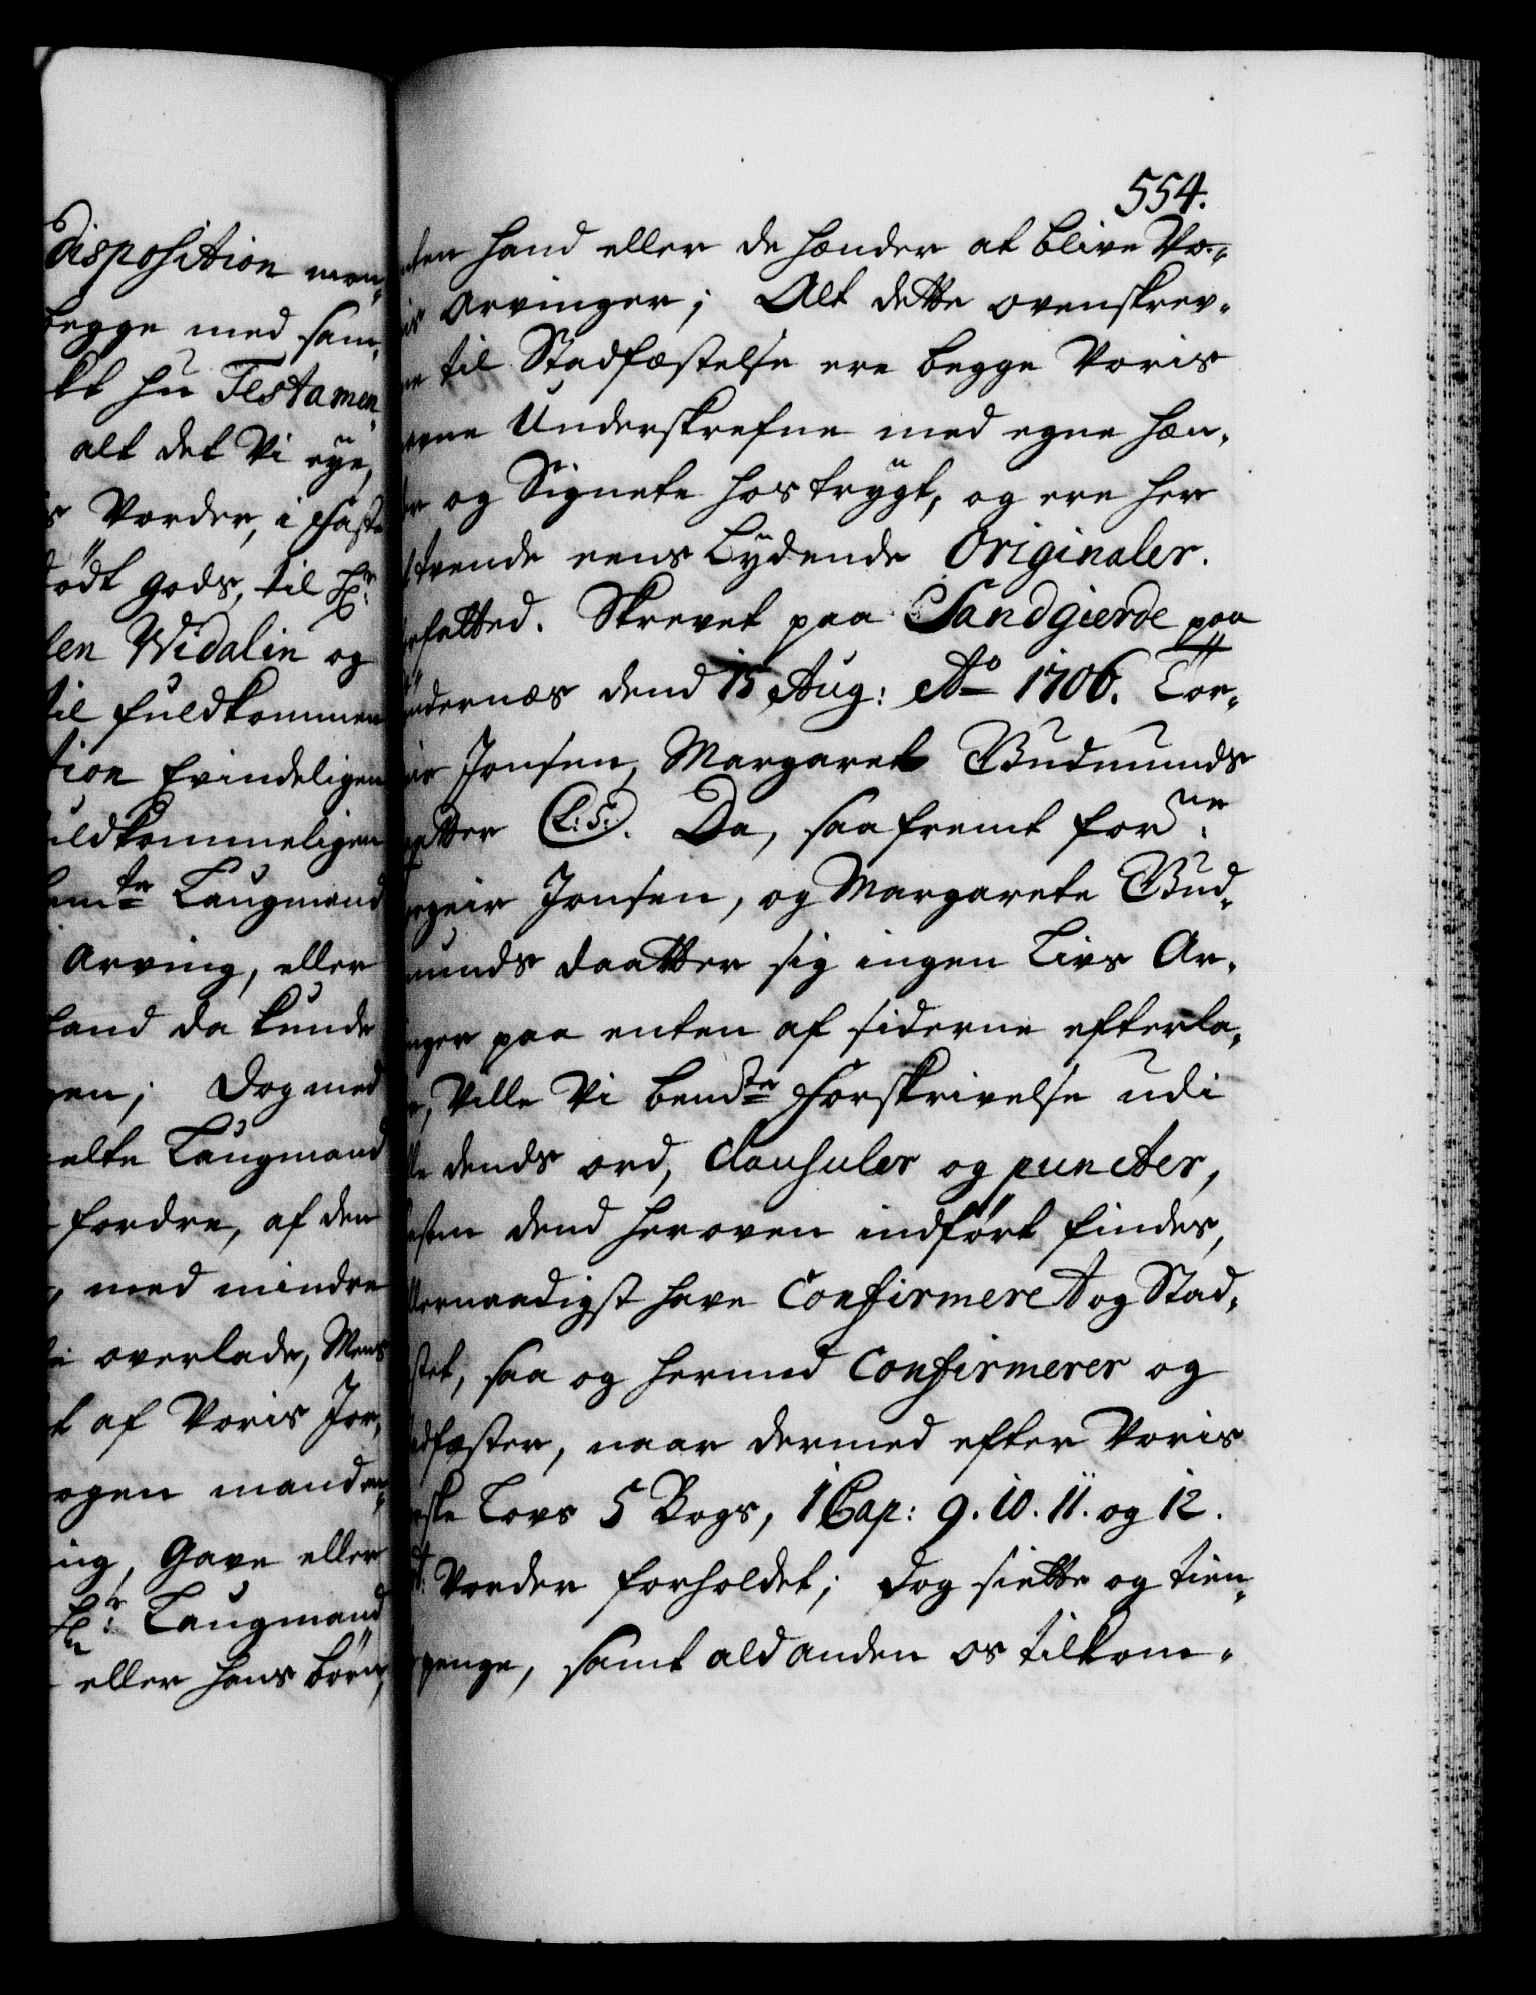 disposition men„
begge med sam„
kt hu Testamen„
alt det Vi eÿe,
s Vorder, i fast
ödt gods, til Hr:
len Widalin og
til fuldkommen
tion Evindeligen
uldkommeligen
emte Laugmand
Arving, eller
hand da kunde
gen; Dog med
elte Laugmand
fordre, af den
, med mindre
i overlade, Mens
t af Voris Jor„
ogen mander„
ng, Gave eller
Hr: Laugmand
eller hans börn,
554.
nten hand eller de hænder at blive Vo„
ris Arvinger; Alt dette ovenskrev„
ne til Stadfæstelse ere begge Voris
nafne Underskrefne med egne hæn„
der og Signete hos trÿgt, og ere her
trende eens Lÿdende Originaler.
forfatted. Skrevet paa Sandgierde paa
Sudernæs dend 15 Aug: Ao 1706. Tor„
geir Jonsen, Margaret Gudmunds
daatter (L: S:). Da, saafremt forne:
Torgeir Jonsen, og Margarete Gud„
munds daatter sig ingen Livs Ar„
vinger paa enten af siderne efterla„
der, Ville Vi bemdte Forskrivelse udi
alle dends ord, Clausuler og puncter,
som dend heroven indfört findes,
allernaadigst have Confirmeret og Stad„
fæstet, saa og hermed Confirmerer og
stadfæster, naar dermed efter Voris
Norske Lovs 5 Bogs, 1 Cap: 9. 10. 11. og 12.
Art: Vorder forholdet; Dog siette og tien„
de penge, samt ald anden os tilkom„